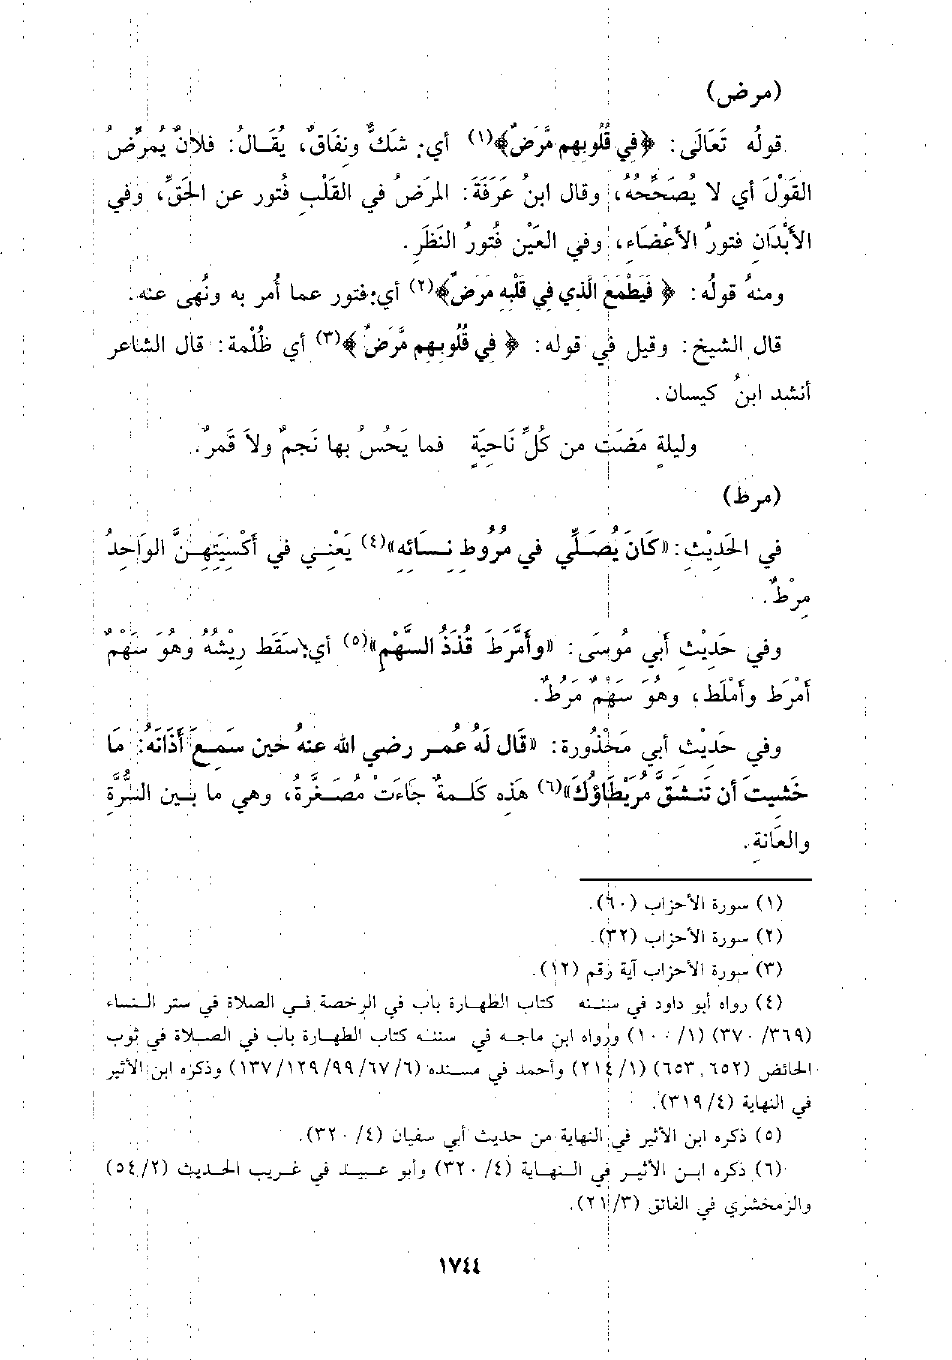 (مرض)
قولُه تَعَالَى: ﴿في قُلُوبهم مَّرَضٌ﴾(١) أي: شكٌّ ونِفَاقٌ، يُقَـالُ: فلانٌ يُمرِّضُ
القَوْلَ أي لا يُصَحِّحُهُ، وقال ابنُ عَرَفَةَ: المرَضُ في القَلْبِ فُتور عن الحَقِّ، وفي
الأَبْدَانِ فتورُ الأَعْضَاء، وفي العَيْنِ فُتورُ النَظَرِ.
ومنهُ قولُه: ﴿ فَيَطْمَعَ الَّذي في قَلْبِهِ مَرَضٌ﴾(٢) أي: فتور عما أُمر به ونُهى عنه.
قال الشيخ: وقيل في قوله: ﴿ في قُلُوبهم مَّرَضٌ ﴾(٣) أي ظُلْمة: قال الشاعر
أنشد ابنُ كيسان.
وليلةٍ مَضَت من كُلِّ نَاحِيَةٍ فما يَحُسُ بها نَجمٌ ولاَ قَمرُ.
(مرط)
في الحَدِيْثِ: «كَانَ يُصَلِّي في مُرُوطِ نِسائِهِ»(٤) يَعْنـي في أَكْسِيَتِهـنَّ الوَاحِدُ
مِرْطٌ.
وفي حَدِيْثِ أبي مُوسَى: «وأَمَّرَطَ قُذَذُ السَّهْمِ»(٥) أي: سَقَط رِيْشُهُ وهُوَ سَهْمٌ
أَمْرَط وأَمْلَط، وهُوَ سَهْمٌ مَرُطٌ.
وفي حَدِيْثِ أبي مَحْذُورة: «قَال لَهُ عُمـر رضي الله عنهُ حَين سَمِـعَ أَذَانَهُ: مَا
خَشيتَ أن تَنشقَّ مُرَيْطَاؤُكَ»(٦) هَذِه كَلـمةٌ جَاءَتْ مُصَغَّرةُ، وهي ما بـين السُّرَّةِ
والعَانةِ.
(١) سورة الأحزاب (٦٠).
(٢) سورة الأحزاب (٣٢).
(٣) سورة الأحزاب آية رقم (١٢).
(٤) رواه أبو داود في سننه كتاب الطهارة باب في الرخصة فـي الصلاة في ستر النساء
(٣٦٩/ ٣٧٠) (١/ ١٠٠) ورواه ابن ماجـه في سننـه كتاب الطهارة باب في الصـلاة في ثوب
الحائض (٦٥٢, ٦٥٣) (١/ ٢١٤) وأحمد في مسنده (٦/ ٦٧/ ٩٩/ ١٢٩/ ١٣٧) وذكره ابن الأثير
في النهاية (٤/ ٣١٩).
(٥) ذكره ابن الأثير في النهاية من حديث أبي سفيان (٤/ ٣٢٠).
(٦) ذكره ابـن الأثيـر في النهـاية (٤/ ٣٢٠) وأبو عـبيـد في غـريب الحديث (٢/ ٥٤)
والزمخشري في الفائق (٣/ ٢١).
١٧٤٤